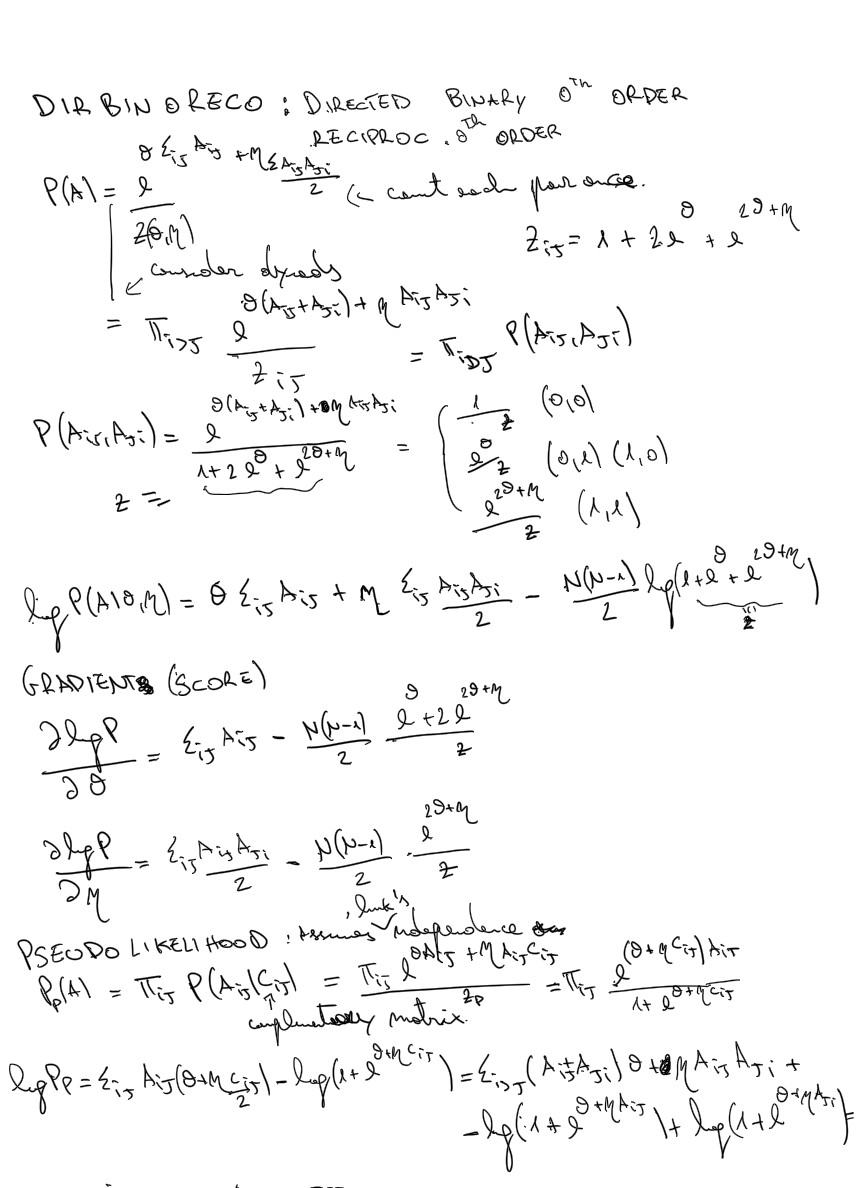 DIR BIN 0 RECO : DIRECTED BINARY 0^Th ORDER
RECIPROC. 0^th ORDER
P(A) = e^{θ Σ_ij A_ij + η Σ A_ij A_ji / 2} / Z(θ,η) ← count each pair once.
Z_ij = 1 + 2e^θ + e^{2θ+η}
↙ consider dyads
= Π_{i>j} e^{θ(A_ij + A_ji) + η A_ij A_ji} / Z_ij = Π_{i>j} P(A_ij, A_ji)
P(A_ij, A_ji) = e^{θ(A_ij + A_ji) + η A_ij A_ji} / (1 + 2e^θ + e^{2θ+η}) = { 1/Z (0,0)
e^θ/Z (0,1) (1,0)
Z =
e^{2θ+η}/Z (1,1)
log P(A|θ,η) = θ Σ_ij A_ij + η Σ_ij A_ij A_ji / 2 - N(N-1)/2 log(1 + e^θ + e^{2θ+η})
Z
GRADIENT (SCORE)
∂ log P / ∂θ = Σ_ij A_ij - N(N-1)/2 (e^θ + 2e^{2θ+η}) / Z
∂ log P / ∂η = Σ_ij A_ij A_ji / 2 - N(N-1)/2 · e^{2θ+η} / Z
PSEUDO LIKELIHOOD : Assumes link's independence
P_p(A) = Π_ij P(A_ij|C_ij) = Π_ij e^{θA_ij + η A_ij C_ij} / Z_p = Π_ij e^{(θ+η C_ij) A_ij} / (1 + e^{θ+η C_ij})
matrix.
log P_p = Σ_ij A_ij(θ+η C_ij / 2) - log(1 + e^{θ+η C_ij}) = Σ_{i>j} (A_ij + A_ji) θ + η A_ij A_ji +
- log(1 + e^{θ+η A_ij}) + log(1 + e^{θ+η A_ji}) =